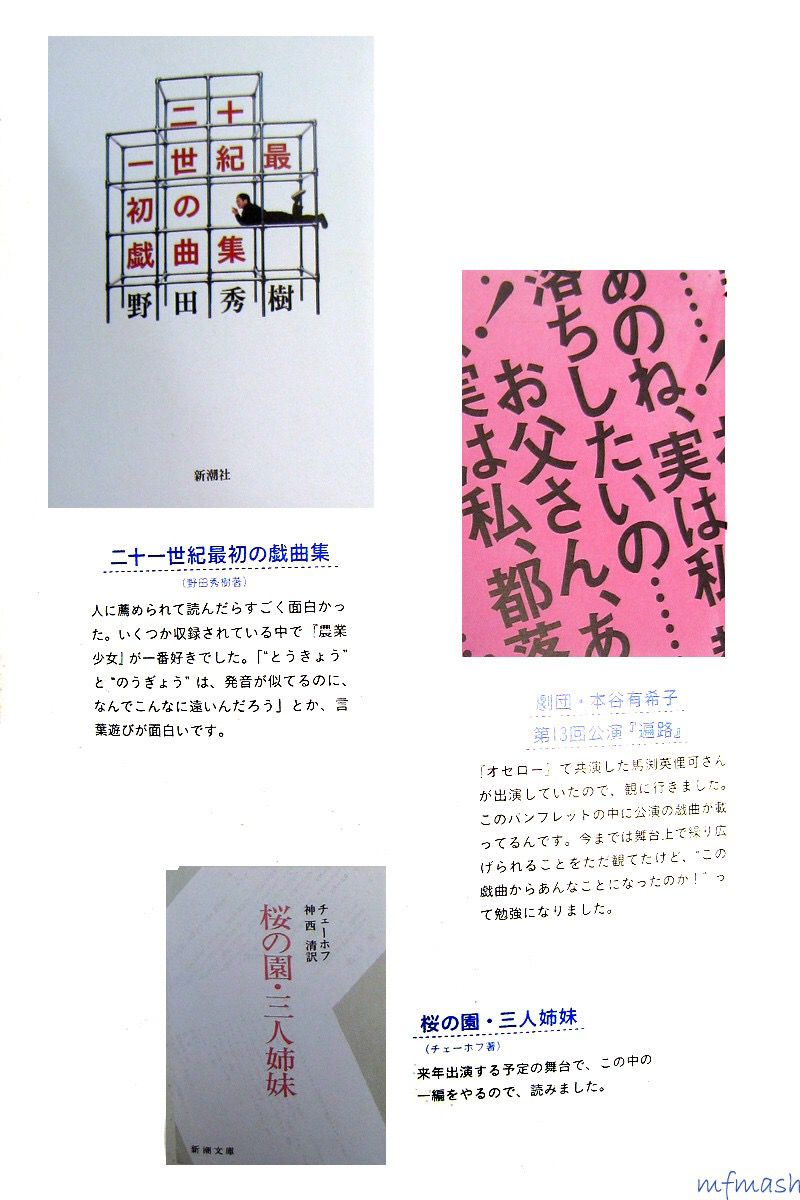 二十
一世紀最
初の
戯曲集
野田秀樹
新潮社
二十一世紀最初の戯曲集
(野田秀樹著)
人に薦められて読んだらすごく面白かっ
た。いくつか収録されている中で『農業
少女』が一番好きでした。「“とうきょう”
と“のうぎょう”は、発音が似てるのに、
なんでこんなに遠いんだろう」とか、言
葉遊びが面白いです。
……！
あのね、実は私
落ちしたいの……
お父さん、あ
、！
実は私、都落
劇団・本谷有希子
第13回公演『遍路』
『オセロー』で共演した馬渕英俚可さん
が出演していたので、観に行きました。
このパンフレットの中に公演の戯曲が載
ってるんです。今までは舞台上で繰り広
げられることをただ観てたけど、“この
戯曲からあんなことになったのか！”っ
て勉強になりました。
チェーホフ
神西 清訳
桜の園・三人姉妹
新潮文庫
桜の園・三人姉妹
(チェーホフ著)
来年出演する予定の舞台で、この中の
一編をやるので、読みました。
mfmash